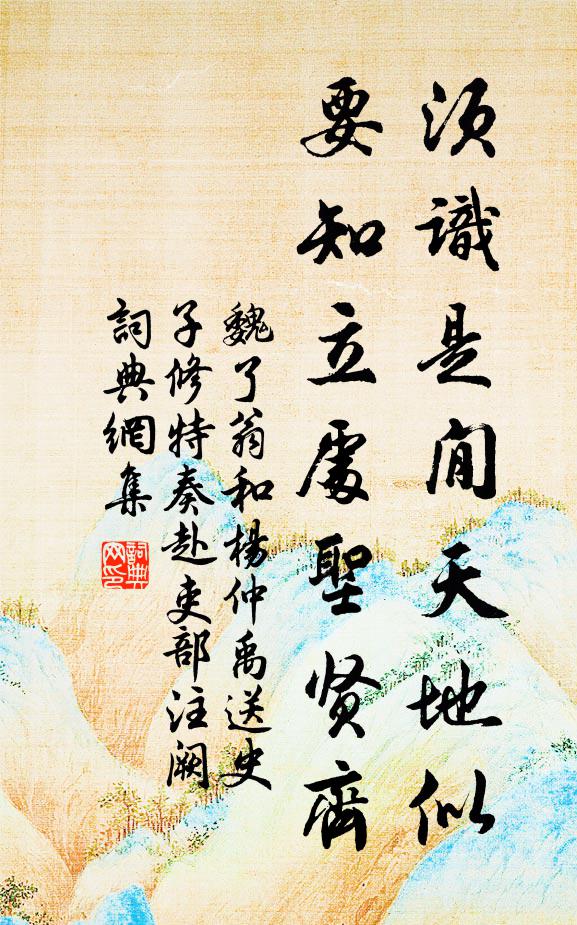 須識是間天地似
要知立處聖賢齊
魏了翁和楊仲禹送史
子修特奏赴吏部注闕
詞典網集
詞典網印